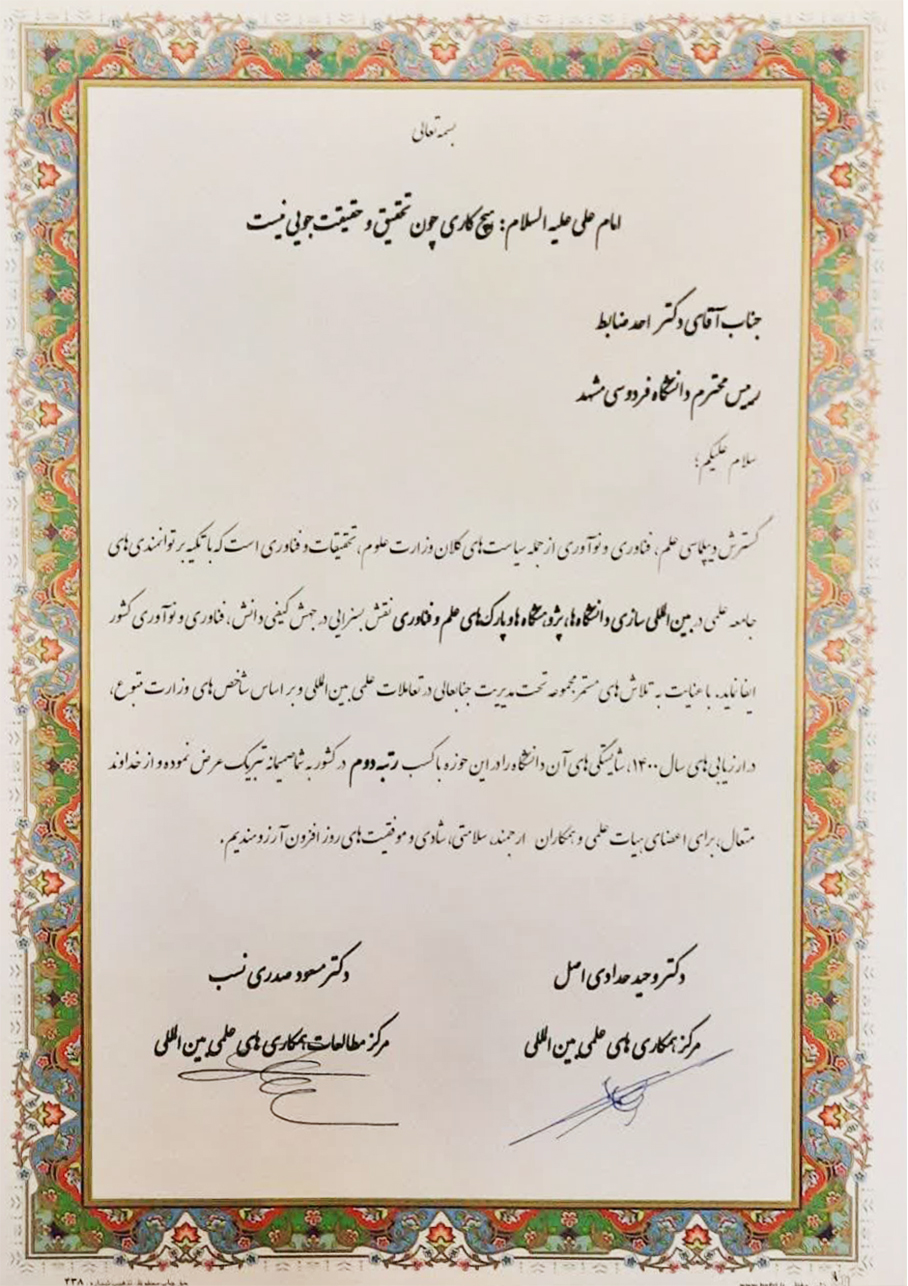 بسمه تعالی
امام علی علیه السلام: هیچ کاری چون تحقیق و حقیقت جویی نیست
جناب آقای دکتر احد ضابط
رییس محترم دانشگاه فردوسی مشهد
سلام علیکم؛
گسترش دیپلماسی علم، فناوری و نوآوری از جمله سیاست های کلان وزارت علوم، تحقیقات و فناوری است که با تکیه بر توانمندی های
جامعه علمی در بین المللی سازی دانشگاه ها، پژوهشگاه ها و پارک های علم و فناوری نقش بسزایی در جهش کیفی دانش، فناوری و نوآوری کشور
ایفا نماید. با عنایت به تلاش های مستمر مجموعه تحت مدیریت جنابعالی در تعاملات علمی بین المللی و بر اساس شاخص های وزارت متبوع،
در ارزیابی های سال ۱۴۰۰، شایستگی های آن دانشگاه را در این حوزه با کسب رتبه دوم در کشور به شما صمیمانه تبریک عرض نموده و از خداوند
متعال، برای اعضای هیات علمی و همکاران ارجمند، سلامتی، شادی و موفقیت های روز افزون آرزومندیم.
دکتر وحید حدادی اصل
دکتر مسعود صدری نسب
مرکز همکاری های علمی بین المللی
مرکز مطالعات همکاری های علمی بین المللی
۲۳۸